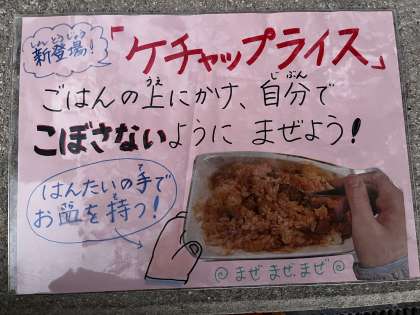 しんとうじょう
新登場!
「ケチャップライス」
ごはんの上にかけ、自分で
うえ
じぶん
こぼさないように まぜよう!
はんたいの手で
て
お皿を持つ!
まぜ まぜ まぜ